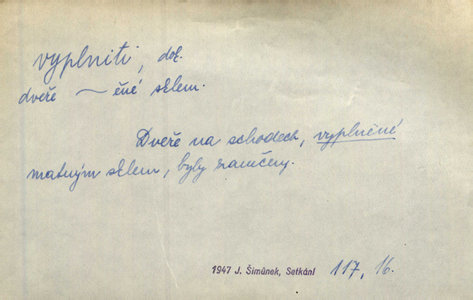 vyplniti, dok.
dveře ~ ěné sklem.
Dveře na schodech, vyplněné
matným sklem, byly zamčeny.
1947 J. Šimůnek, Setkání 117, 16.